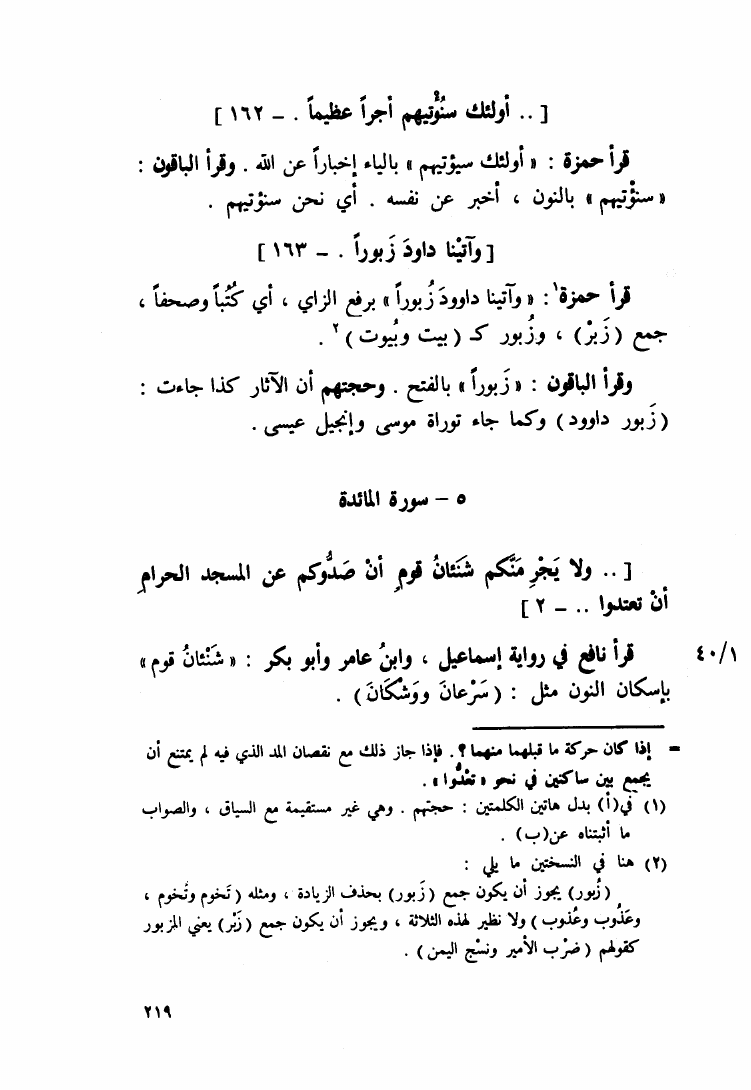 [ .. أولئك سنُؤْتيهم أجراً عظيماً . ــ ١٦٢ ]
قرأ حمزة : « أولئك سيؤتيهم » بالياء إخباراً عن الله . وقرأ الباقون :
« سنؤْتيهم » بالنون ، أخبر عن نفسه . أي نحن سنؤتيهم .
[ وآتيْنا داودَ زَبوراً . ــ ١٦٣ ]
قرأ حمزة١ : « وآتينا داوودَ زُبوراً » برفع الزاي ، أي كُتُباً وصحفاً ،
جمع (زَبرْ) ، وزُبور كـ (بيت وبُيوت) ٢ .
وقرأ الباقون : « زَبوراً » بالفتح . وحجتهم أن الآثار كذا جاءت :
(زَبور داوود) وكما جاء توراة موسى وإنجيل عيسى .
٥ – سورة المائدة
[ .. ولا يَجْرِمَنَّكم شَنَئانُ قومٍ أنْ صَدُّوكم عن المسجد الحرامِ
أنْ تعتدوا .. ــ ٢ ]
٤٠/١ قرأ نافع في رواية إسماعيل ، وابنُ عامر وأبو بكر : « شَنْئانُ قوم »
بإسكان النون مثل : (سَرْعانَ ووَشْكَانَ) .
= إذا كان حركة ما قبلهما منهما ؟ . فإذا جاز ذلك مع نقصان المد الذي فيه لم يمتنع أن
يجمع بين ساكنين في نحو « تعْدُّوا » .
(١) في(أ) بدل هاتين الكلمتين : حجتهم . وهي غير مستقيمة مع السياق ، والصواب
ما أثبتناه عن(ب) .
(٢) هنا في النسختين ما يلي :
(زُبور) يجوز أن يكون جمع (زَبور) بحذف الزيادة ، ومثله (تَخوم وتُخوم ،
وعَذُوب وعُذوب) ولا نظير لهذه الثلاثة ، ويجوز أن يكون جمع (زَبْر) يعني المزبور
كقولهم (ضرْب الأمير ونسْج اليمن) .
٢١٩